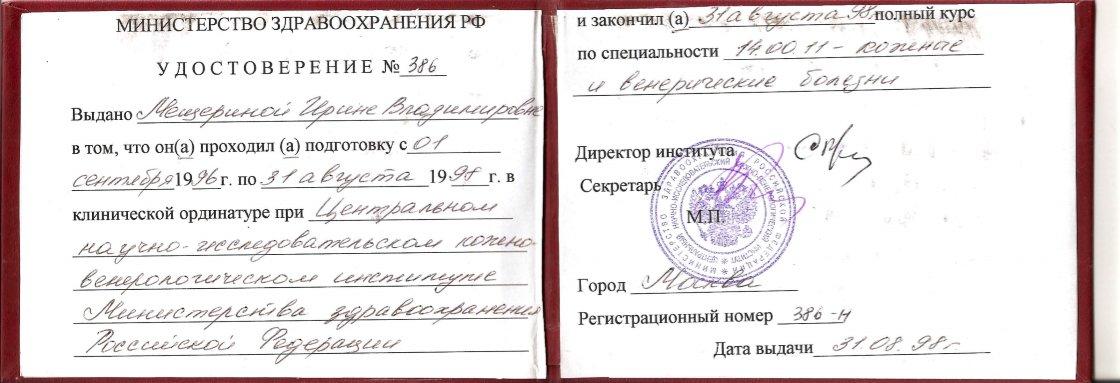 МИНИСТЕРСТВО ЗДРАВООХРАНЕНИЯ РФ
УДОСТОВЕРЕНИЕ № 386
Выдано Мещериной Ирине Владимировне
в том, что он(а) проходил (а) подготовку с 01
сентября 1996 г. по 31 августа 1998 г. в
клинической ординатуре при Центральном
научно-исследовательском кожно-
венерологическом институте
Министерства здравоохранения
Российской Федерации
и закончил (а) 31 августа 98 полный курс
по специальности 14.00.11 - кожные
и венерические болезни
Директор института
Секретарь
М.П.
Город Москва
Регистрационный номер 386-н
Дата выдачи 31.08.98г.